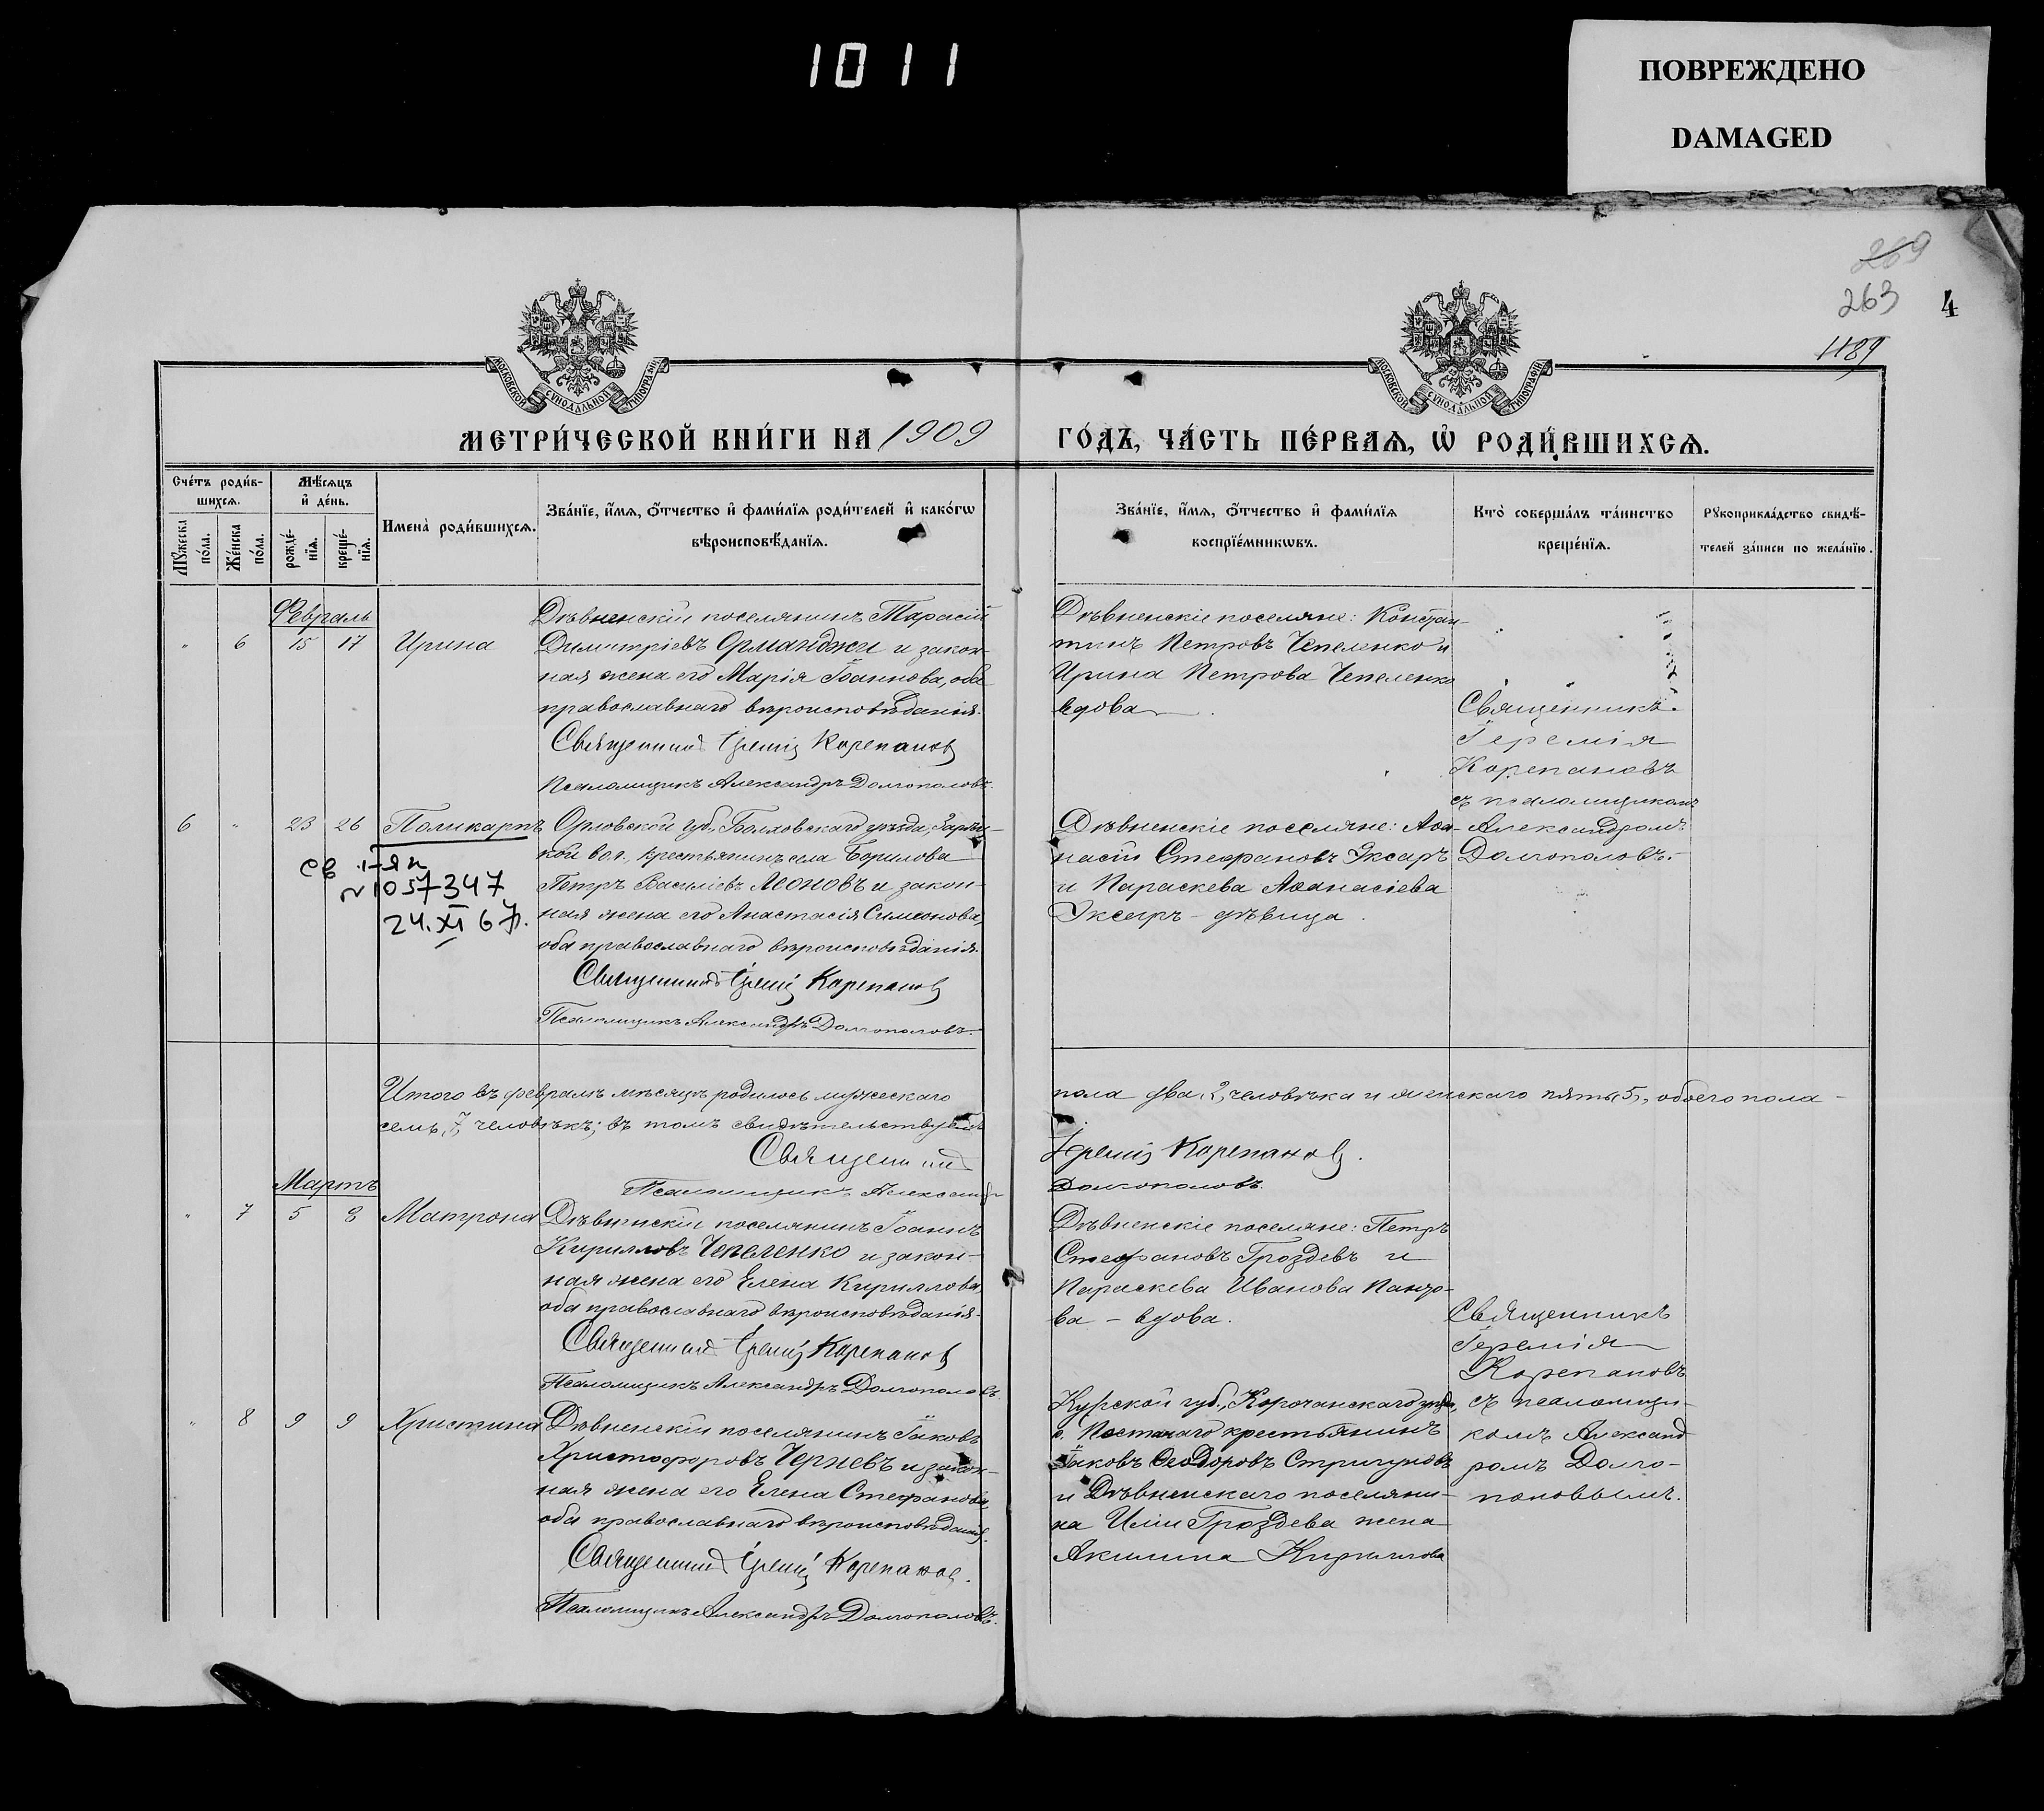 1011
ПОВРЕЖДЕНО
DAMAGED
269
263
4
1189
МОСКОВСКОЙ СѴНОДАЛЬНОЙ ТИПОГРАФІИ
МОСКОВСКОЙ СѴНОДАЛЬНОЙ ТИПОГРАФІИ
МЕТРИ́ЧЕСКОЙ КНИ́ГИ НА 1909 ГО́ДЪ, ЧА́СТЬ ПЕ́РВАѦ, Ѡ҆ РОДИ́ВШИХСѦ.
Сче́тъ роди́в-
шихсѧ.
Мꙋ́жеска
по́ла.
Же́нска
по́ла.
Мѣ́сѧцъ
и҆ де́нь.
рожде́-
нїѧ.
креще́-
нїѧ.
Имена̀ роди́вшихсѧ.
Зва́нїе, и҆́мѧ, ѻ҆́тчество и҆ фами́лїѧ роди́телей и҆ како́гѡ
вѣроисповѣ́данїѧ.
Зва́нїе, и҆́мѧ, ѻ҆́тчество и҆ фами́лїѧ
воспрїе́мникѡвъ.
Кто̀ соверша́лъ та́инство
креще́нїѧ.
Рꙋкоприкла́дство свидѣ́-
телей за́писи по жела́нїю.
Февраль
" 6 15 17 Ирина
Дѣвненскій поселянинъ Тарасій
Димитріевъ Орманджи и закон-
ная жена его Марія Іоаннова, оба
православнаго вѣроисповѣданія.
Священникъ Іеремія Корепановъ
Псаломщикъ Александръ Долгополовъ.
Дѣвненскіе поселяне: Констан-
тинъ Петровъ Чепеленко и
Ирина Петрова Чепеленко
вдова
Священникъ
Іеремія
Корепановъ
съ псаломщикомъ
Александромъ
Долгополовъ.
6 " 23 26 Поликарпъ
св I-ЯП
№1057347
24.XI 67г.
Орловской губ., Болховскаго уѣзда,
кой вол., крестьянинъ села Борилова
Петръ Василіевъ Леоновъ и закон-
ная жена его Анастасія Симеонова,
оба православнаго вѣроисповѣданія.
Священникъ Іеремія Корепановъ
Псаломщикъ Александръ Долгополовъ.
Дѣвненскіе поселяне: Аѳа-
насій Стефановъ Эксаръ
и Параскева Аѳанасіева
Эксаръ - дѣвица.
Итого въ февралѣ мѣсяцѣ родилось мужескаго пола два, 2, человѣка и женскаго пять, 5, обоего пола -
семь, 7, человѣкъ; въ томъ свидѣтельствуемъ
Священникъ Іеремія Корепановъ.
Псаломщикъ Александръ Долгополовъ.
Мартъ
" 7 5 8 Матрона
Дѣвненскій поселянинъ Іоаннъ
Кирилловъ Чепеленко и закон-
ная жена его Елена Кириллова,
оба православнаго вѣроисповѣданія.
Священникъ Іеремія Корепановъ
Псаломщикъ Александръ Долгополовъ.
Дѣвненскіе поселяне: Петръ
Стефановъ Гроздевъ и
Параскева Иванова
ва - вдова.
Священникъ
Іеремія
Корепановъ
съ псаломщи-
комъ Александ
ромъ Долго-
половымъ.
" 8 9 9 Христина
Дѣвненскій поселянинъ Іаковъ
Христофоровъ Черневъ и закон-
ная жена его Елена Стефанова,
оба православнаго вѣроисповѣданія.
Священникъ Іеремія Корепановъ.
Псаломщикъ Александръ Долгополовъ.
Курской губ., Корочанскаго уѣзда,
с. крестьянинъ
Іаковъ Ѳеодоровъ Стригуновъ
и Дѣвненскаго поселяни-
на Иліи Гроздева жена
Акилина Кириллова